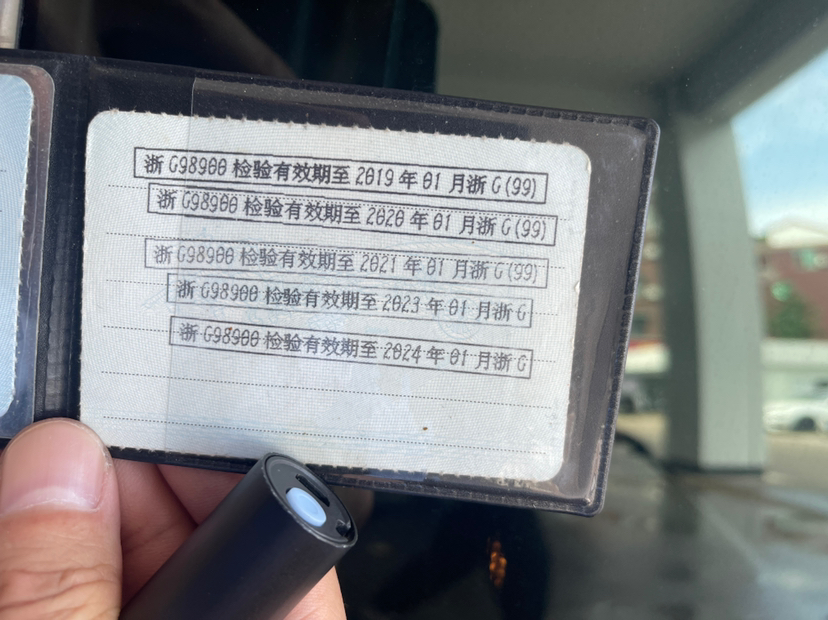 浙 G98900 检验有效期至 2019 年 01 月浙 G(99)
浙 G98900 检验有效期至 2020 年 01 月浙 G(99)
浙 G98900 检验有效期至 2021 年 01 月浙 G(99)
浙 G98900 检验有效期至 2023 年 01 月浙 G
浙 G98900 检验有效期至 2024 年 01 月浙 G